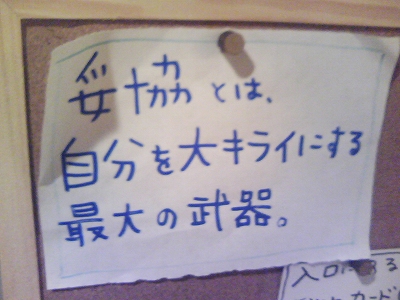 妥協とは、
自分を大キライにする
最大の武器。
入口に
カード